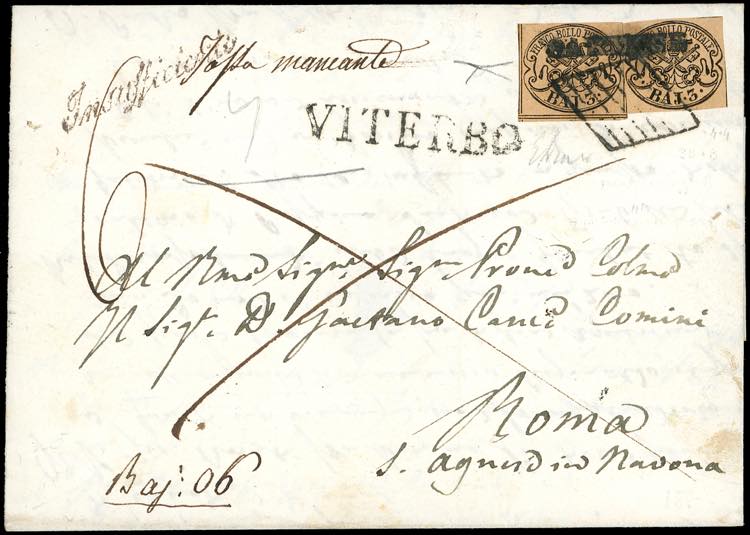 Insufficiente
Tassa mancante
FRANCO BOLLO POSTALE
BAJ. 3.
FRANCO BOLLO POSTALE
BAJ. 3.
VITERBO
6
Al Rmo Sigr. Sigr. Prone Colmo
Il Sigr. D. Gaetano Canco Comini
Roma
S. Agnese in Navona
Baj: 06